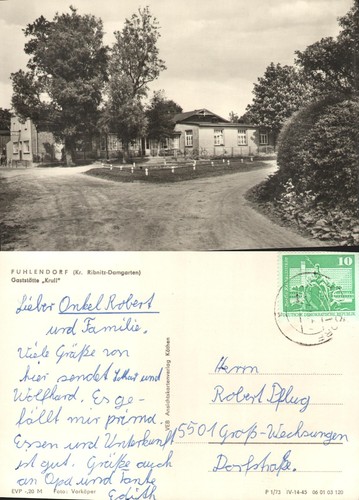 FUHLENDORF (Kr. Ribnitz-Damgarten)
Gaststätte „Krull"
10
Lieber Onkel Robert
und Familie.
Viele Grüße von
hier sendet und
Wolfhard. Es ge-
fällt mir prima.
Essen und Unterkunft
ist gut. Grüße auch
an Opa und Tante
Edith
VEB Ansichtskartenverlag Köthen
Herrn
Robert Pflug
5501 Groß-Wechsungen
Dorfstraße.
EVP -,20 M Foto: Vorköper
P 1/73 IV-14-45 06 01 03 120